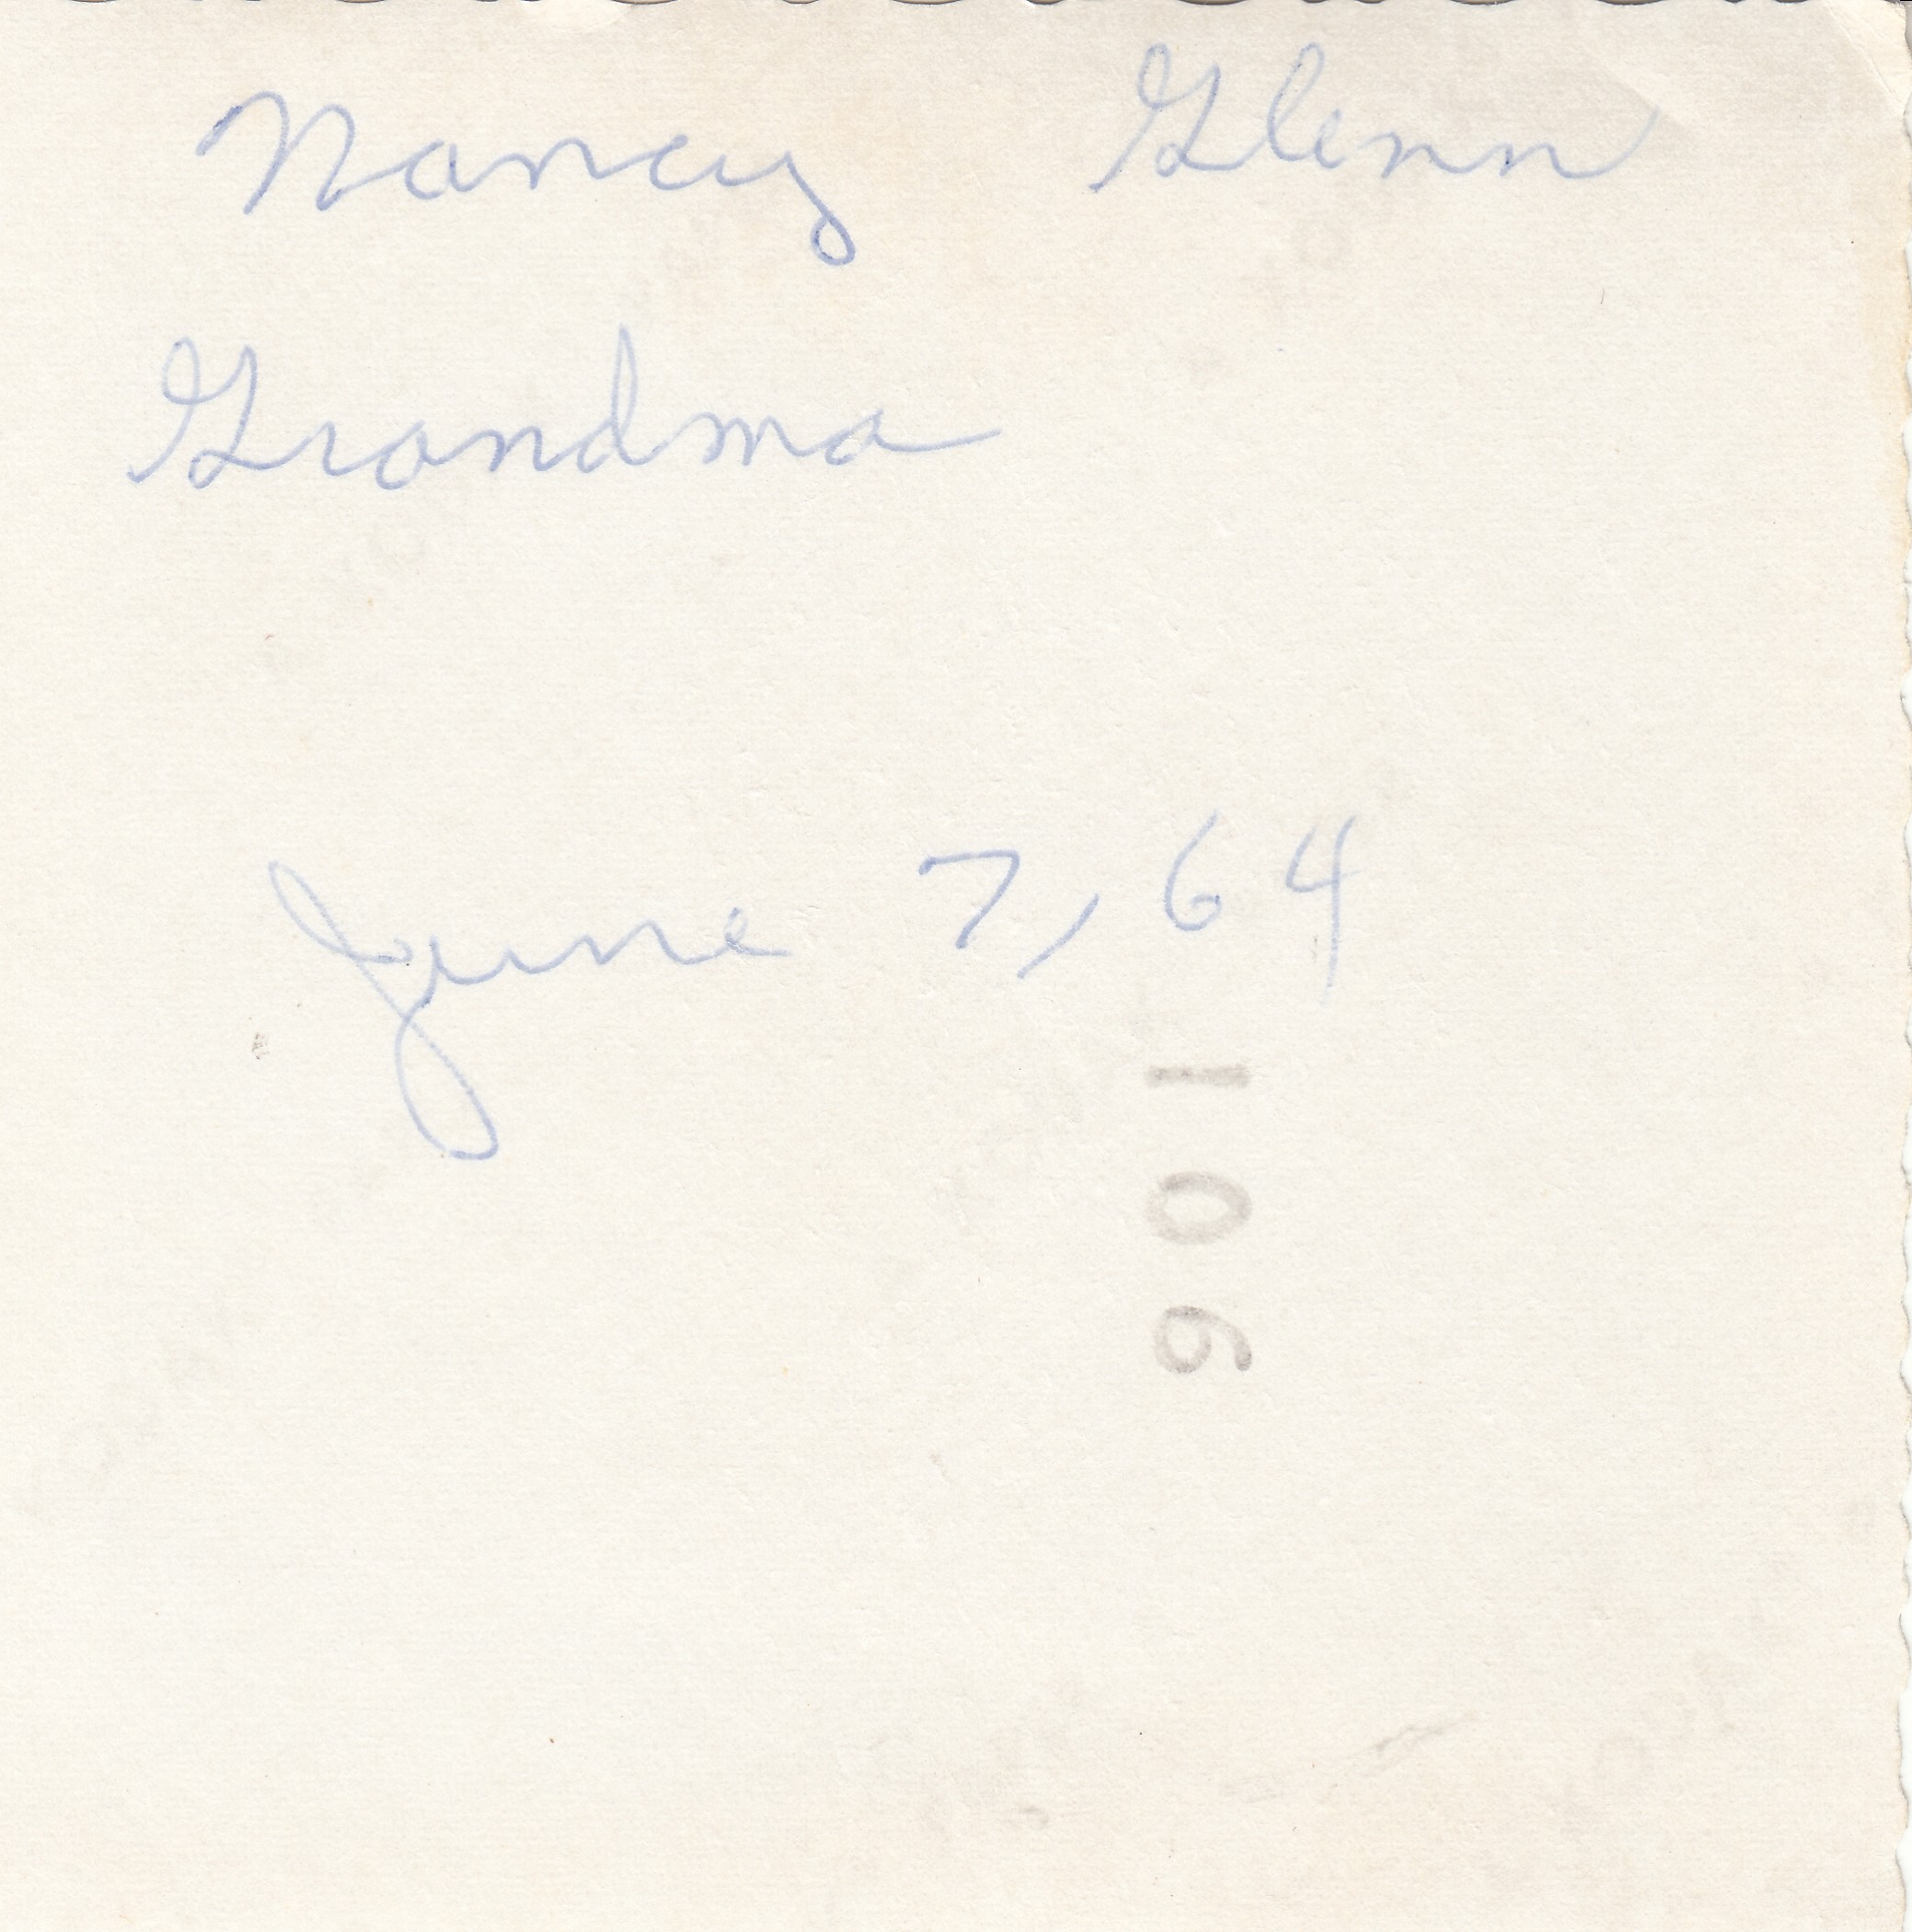 Nancy Glenn
Grandma
June 7, 64
106